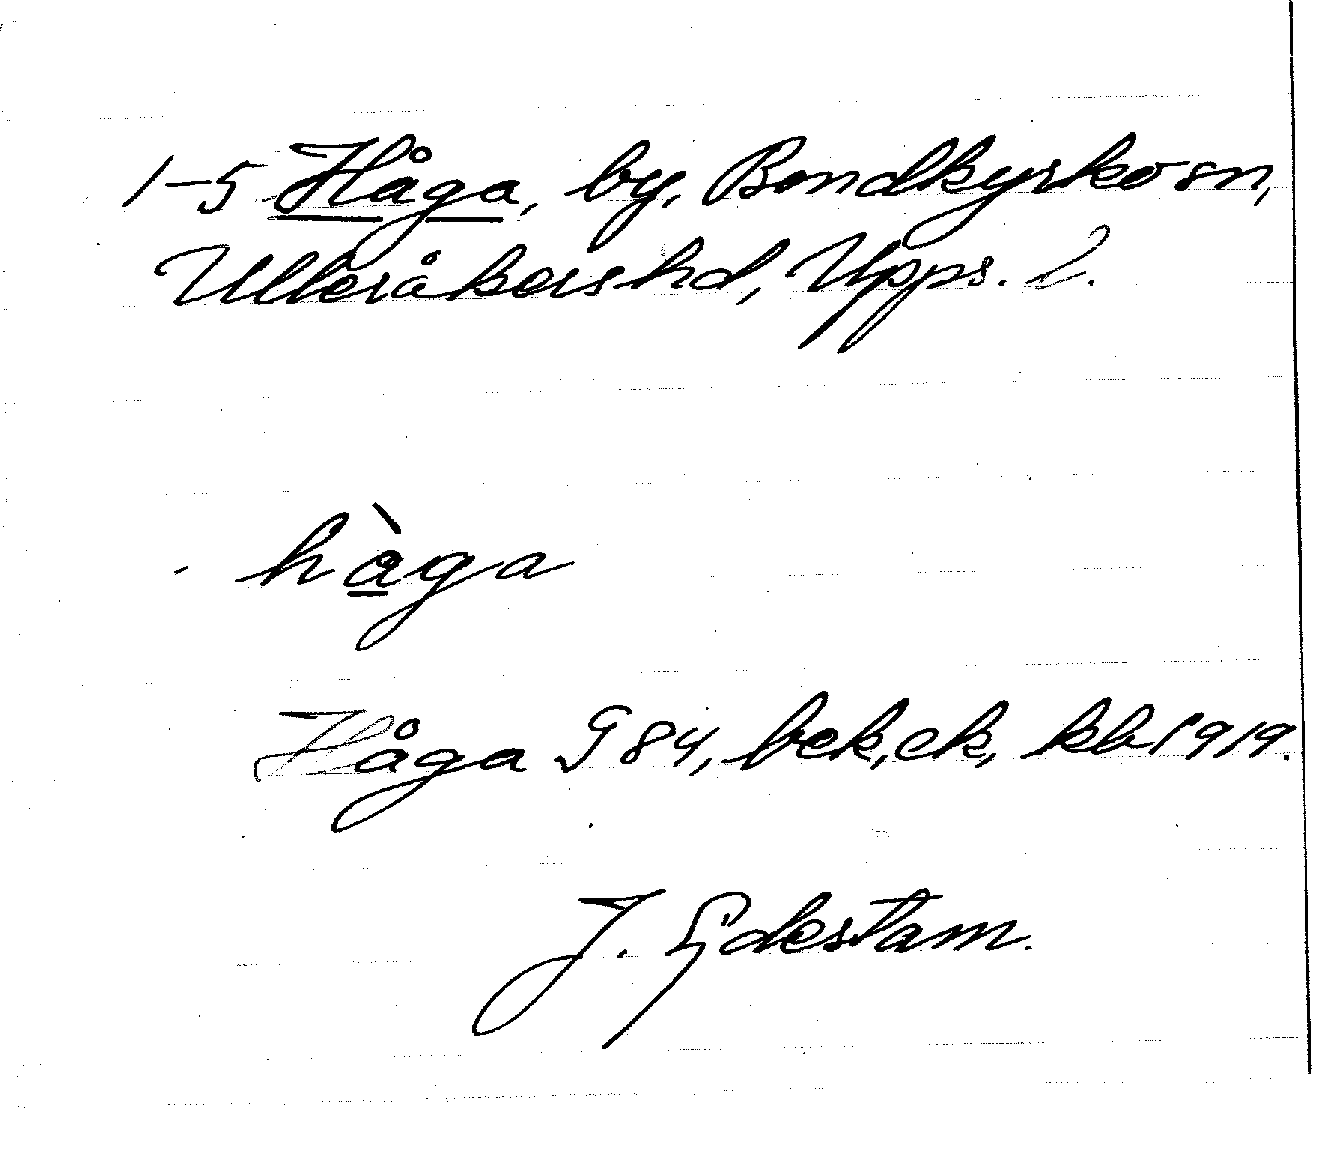 1-5 Håga, by, Bondkyrko sn,
Ulleråkers hd, Upps. l.
håga
Håga G 84, bek, ek, kb 1919.
J. Götlestam.